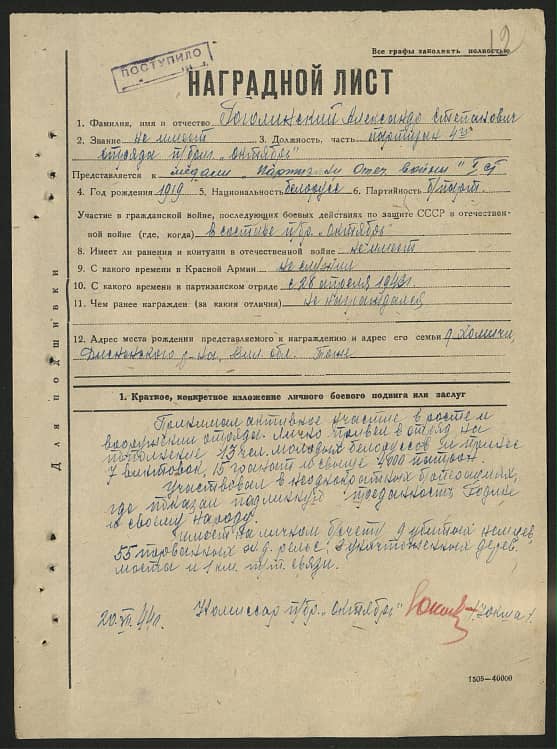 12
Все графы заполнять полностью
ПОСТУПИЛО
НАГРАДНОЙ ЛИСТ
1. Фамилия, имя и отчество Гоголинский Александр Степанович
2. Звание не имеет 3. Должность, часть партизан 4го
отряда п/бриг. „Октябрь"
Представляется к медали „Партизану Отеч. войны" I ст
4. Год рождения 1919 5. Национальность белорус 6. Партийность б/парт.
Участие в гражданской войне, последующих боевых действиях по защите СССР и отечествен-
ной войне (где, когда) в составе п/бр. „Октябрь"
8. Имеет ли ранения и контузии в отечественной войне не имеет
9. С какого времени в Красной Армии не служил
10. С какого времени в партизанском отряде с 28 апреля 1943 г.
11. Чем ранее награжден (за какия отличия) не награждался
12. Адрес места рождения представляемого к награждению и адрес его семьи д. Холмичи,
р-на, обл. Тоже
Для подшивки
1. Краткое, конкретное изложение личного боевого подвига или заслуг
Принимал активное участие в росте и
вооружении отряда. Лично привел в отряд на
пополнение 13 чел. молодых белоруссов и принес
7 винтовок, 15 гранат и свыше 4000 патрон.
Участвовал в неоднократных боеоперациях,
где показал подлинную преданность Родине
и своему народу.
Имеет на личном б/счету 9 убитых немцев,
55 порванных ж.д. рельс, 3 уничтоженных дерев.
моста и 1 км. связи.
20.VII.44 г. Комиссар п/бр. „Октябрь"
1505—40000